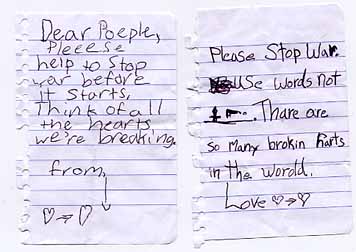 Dear Poeple,
Pleeese
help to Stop
war before
it starts.
Think of all
the hearts
we're breaking.
from,
Please Stop War.
Use words not
. Thare are
so many brokin harts
in the world.
Love